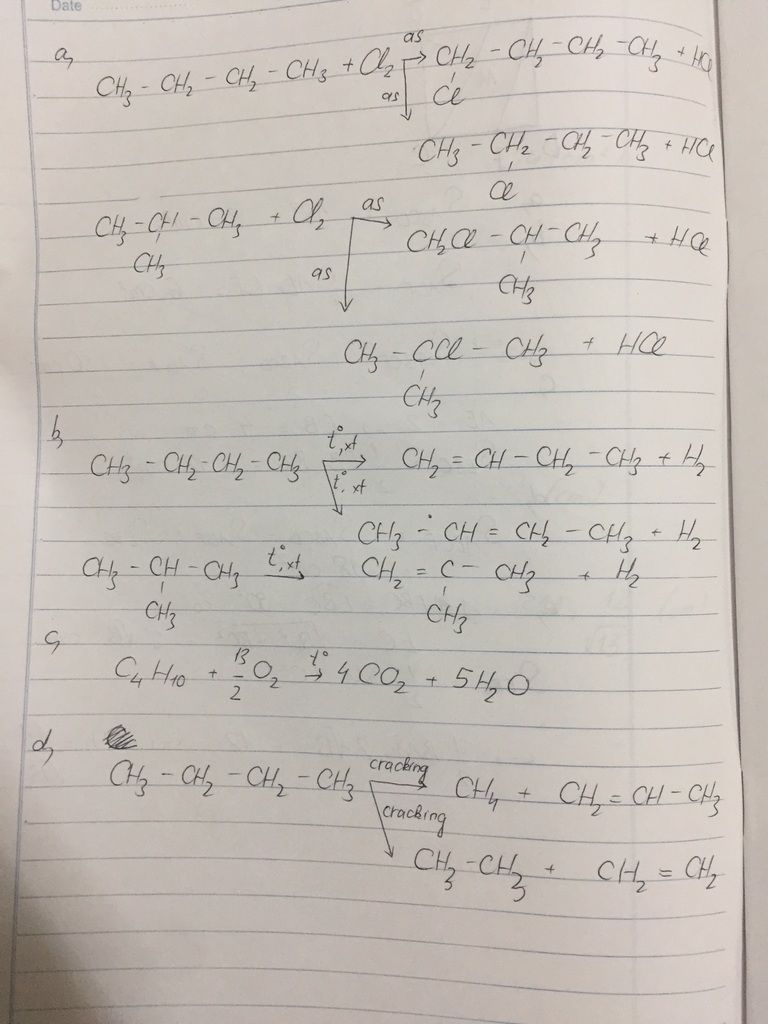 Date
a,
as
CH₃ - CH₂ - CH₂ - CH₃ + Cl₂ → CH₂ - CH₂ - CH₂ - CH₃ + HCl
as
Cl
CH₃ - CH₂ - CH₂ - CH₃ + HCl
Cl
CH₃ - CH - CH₃ + Cl₂ as → CH₂Cl - CH - CH₃ + HCl
CH₃
as
CH₃
CH₃ - CCl - CH₃ + HCl
CH₃
b,
t°, xt
CH₃ - CH₂ - CH₂ - CH₃ → CH₂ = CH - CH₂ - CH₃ + H₂
t°, xt
CH₃ - CH = CH₂ - CH₃ + H₂
CH₃ - CH - CH₃ t°, xt → CH₂ = C - CH₃ + H₂
CH₃ CH₃
c,
C₄H₁₀ + 13/2 O₂ t° → 4CO₂ + 5H₂O
d,
CH₃ - CH₂ - CH₂ - CH₃ cracking → CH₄ + CH₂ = CH - CH₃
cracking
CH₃ - CH₃ + CH₂ = CH₂